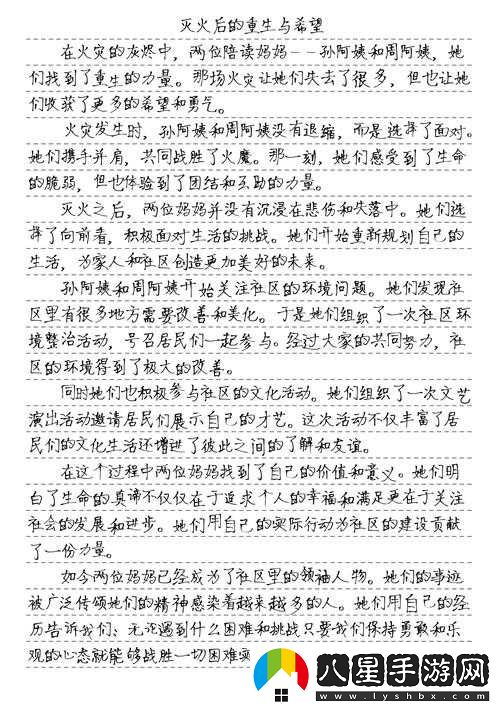 灭火后的重生与希望
在火灾的灰烬中，两位陪读妈妈--孙阿姨和周阿姨，她
们找到了重生的力量。那场火灾让她们失去了很多，但也让她
们收获了更多的希望和勇气。
火灾发生时，孙阿姨和周阿姨没有退缩，而是选择了面对。
她们携手并肩，共同战胜了火魔。那一刻，她们感受到了生命
的脆弱，但也体验到了团结和互助的力量。
灭火之后，两位妈妈并没有沉浸在悲伤和失落中。她们选
择了向前看，积极面对生活的挑战。她们开始重新规划自己的
生活，为家人和社区创造更加美好的未来。
孙阿姨和周阿姨开始关注社区的环境问题。她们发现社
区里有很多地方需要改善和美化。于是她们组织了一次社区环
境整治活动，号召居民们一起参与。经过大家的共同努力，社
区的环境得到了极大的改善。
同时她们也积极参与社区的文化活动。她们组织了一次文艺
演出活动邀请居民们展示自己的才艺。这次活动不仅丰富了居
民们的文化生活还增进了彼此之间的了解和友谊。
在这个过程中两位妈妈找到了自己的价值和意义。她们明
白了生命的真谛不仅仅在于追求个人的幸福和满足更在于关注
社会的发展和进步。她们用自己的实际行动为社区的建设贡献
了一份力量。
如今两位妈妈已经成为了社区里的领袖人物。她们的事迹
被广泛传颂她们的精神感染着越来越多的人。她们用自己的经
历告诉我们：无论遇到什么困难和挑战只要我们保持勇敢和乐
观的心态就能够战胜一切困难实
八星手游网
www.lyshbx.com